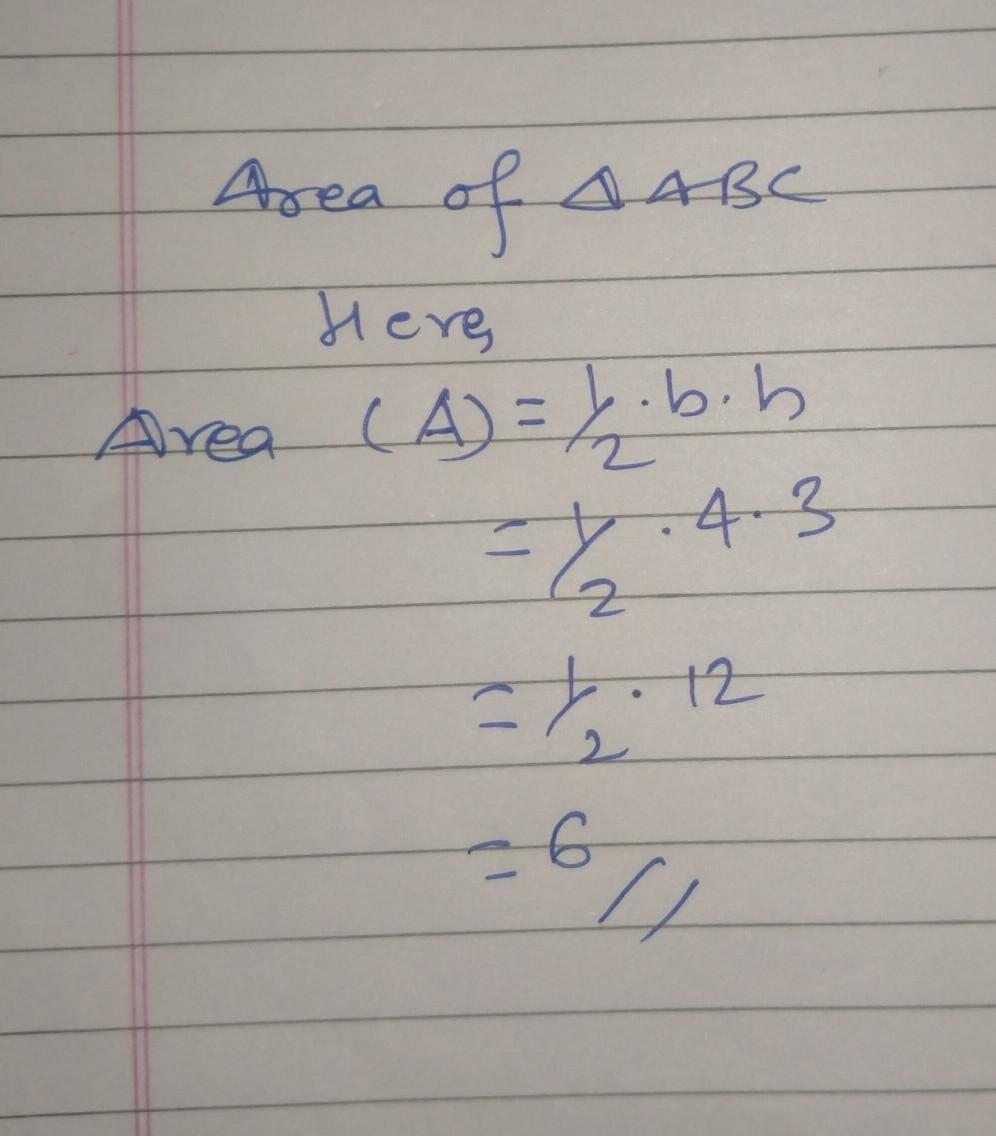 Area of △ ABC
Here,
Area (A) = 1/2 · b · h
= 1/2 · 4 · 3
= 1/2 · 12
= 6 //